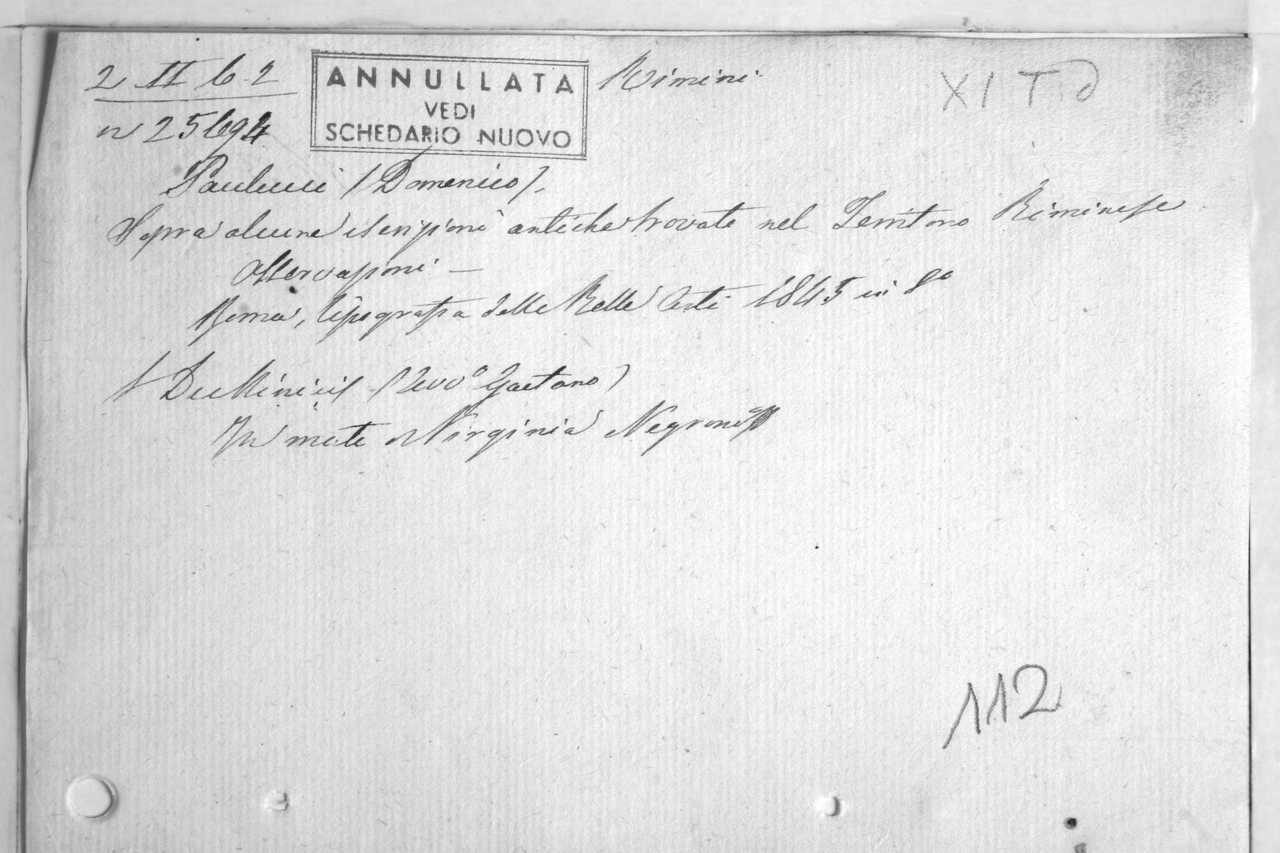 2 II 62
n 25694
ANNULLATA
VEDI
SCHEDARIO NUOVO
Rimini
XI T d
Paulucci (Domenico).
Sopra alcune iscrizioni antiche trovate nel Territorio Riminese
Osservazioni —
Roma, tipografia delle Belle Arti 1845 in 8º
De Minicis (Gaetano)
In morte Virginia Negroni
112